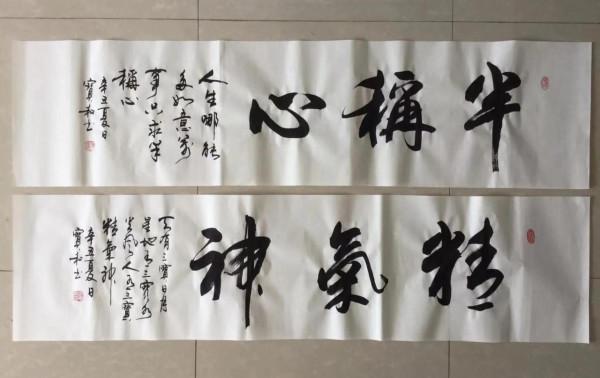 半稱心
人生哪能
多如意萬
事只求半
稱心
辛丑夏日
寶和書
精氣神
天有三寶日月
星地有三寶水
火風人有三寶
精氣神
辛丑夏日
寶和書